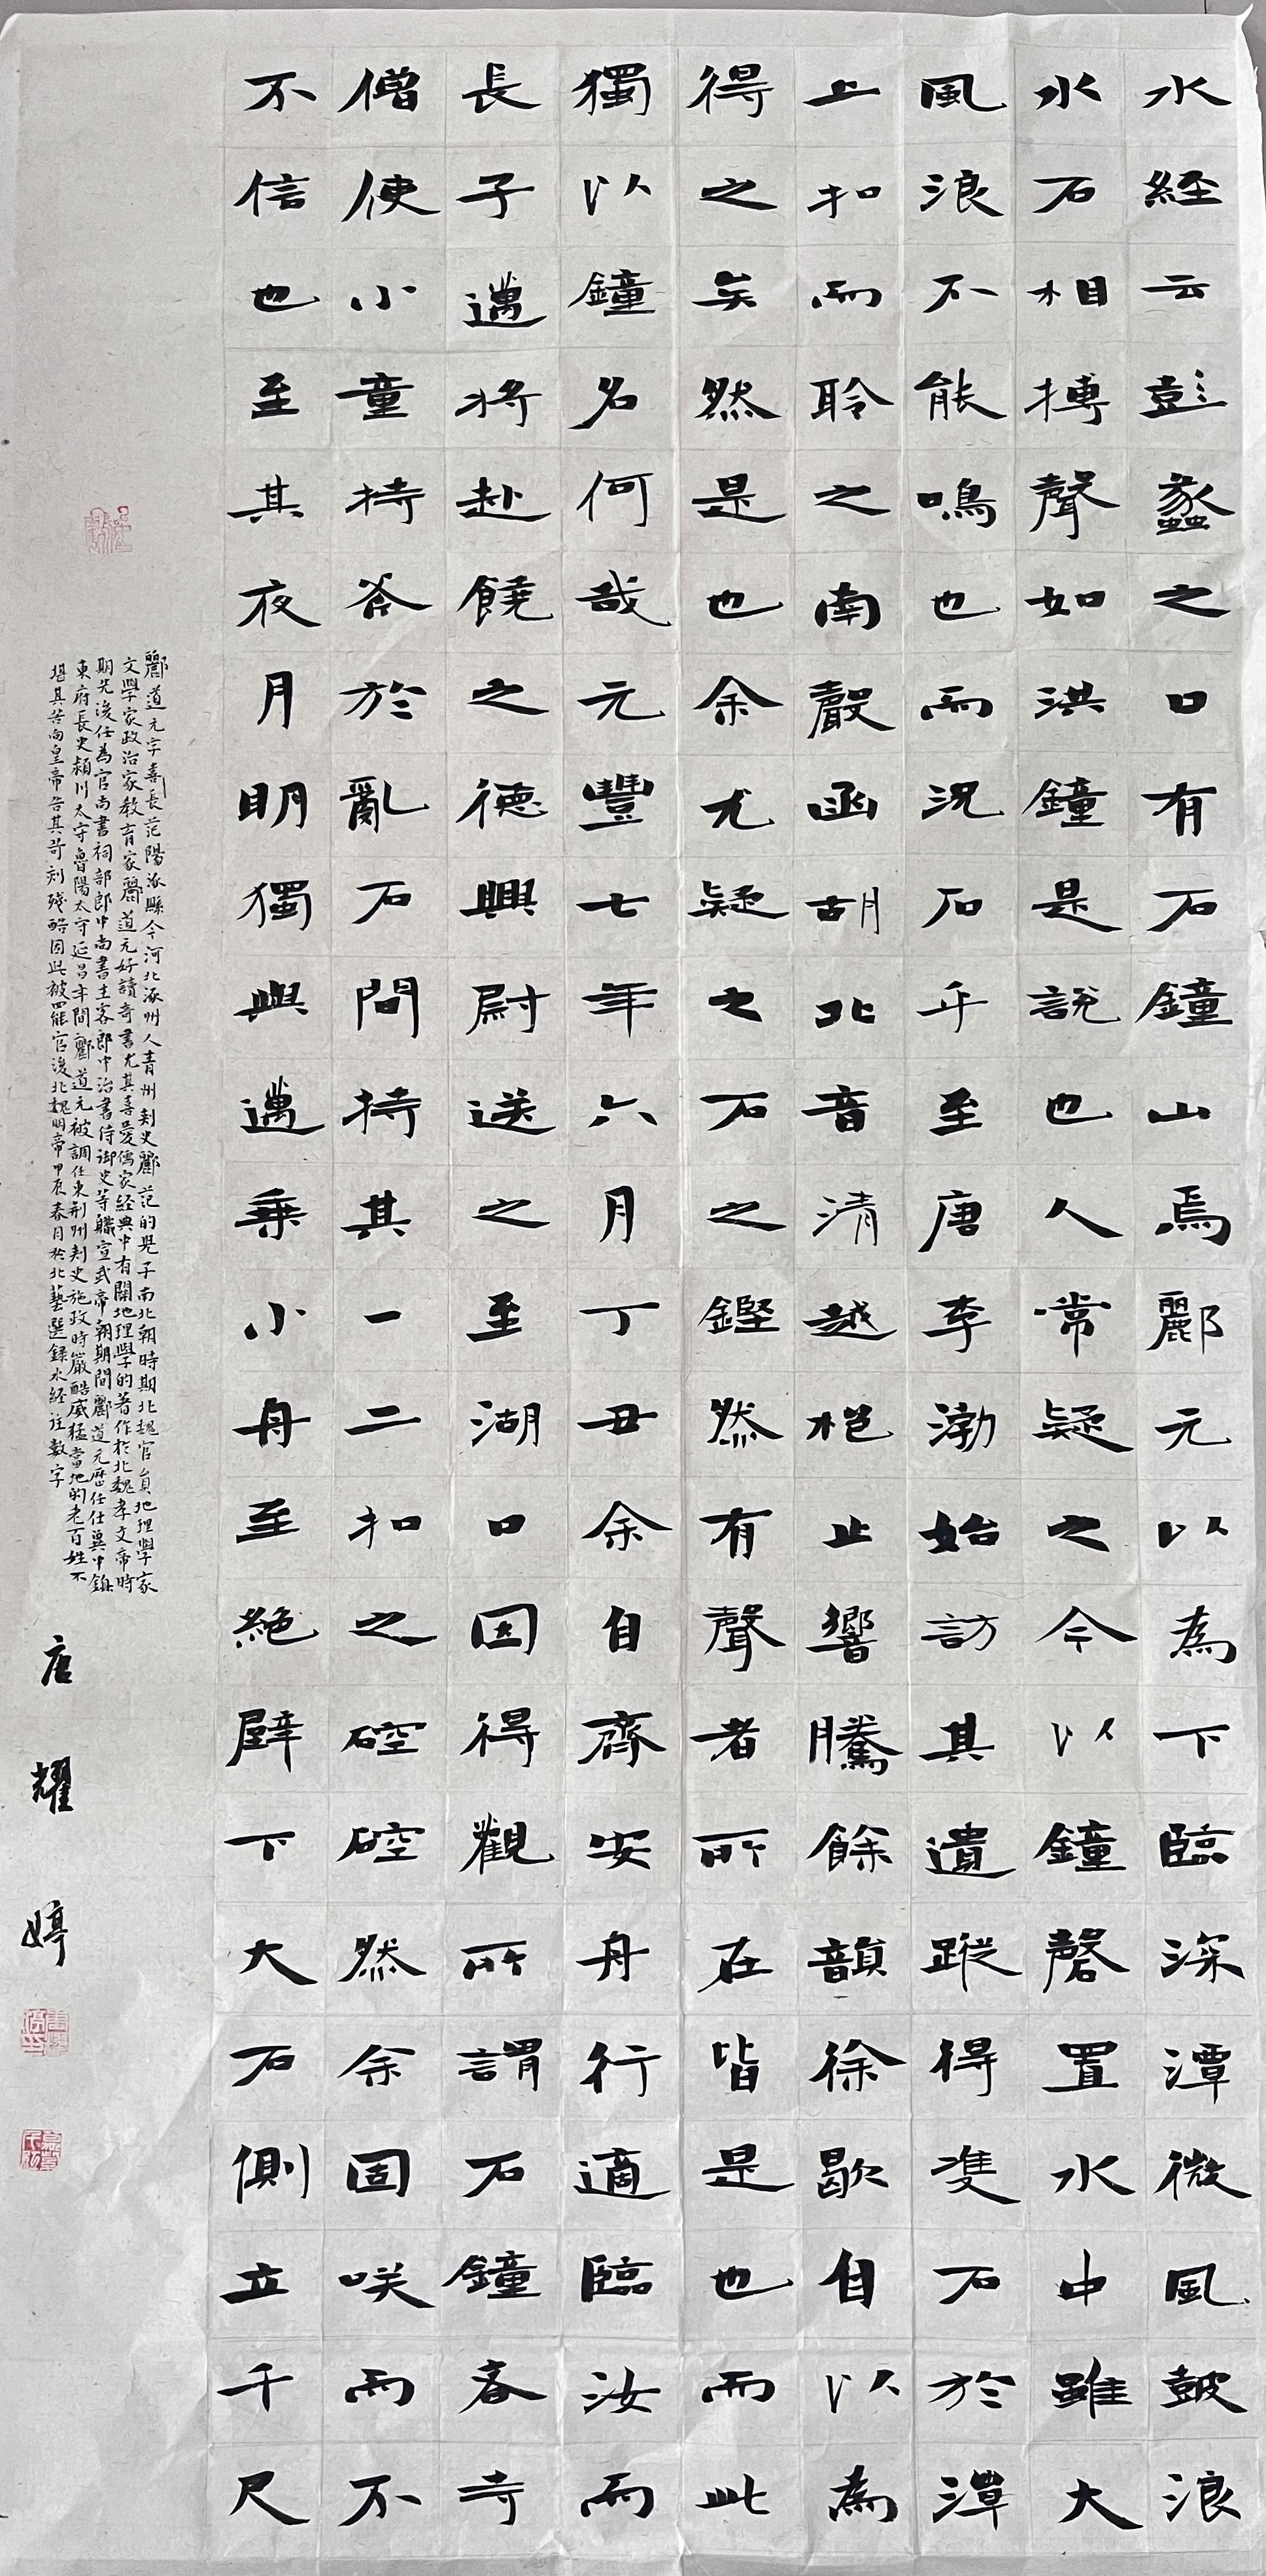 水経云彭蠡之口有石鐘山焉酈元以為下臨深潭微風皷浪
水石相搏聲如洪鐘是說也人常疑之今以鐘磬置水中雖大
風浪不能鳴也而況石乎至唐李渤始訪其遺蹤得雙石於潭
上扣而聆之南聲函胡北音清越枹止響騰餘韻徐歇自以為
得之矣然是也余尤疑之石之鏗然有聲者所在皆是也而此
獨以鐘名何哉元豐七年六月丁丑余自齊安舟行適臨汝而
長子邁將赴饒之德興尉送之至湖口因得觀所謂石鐘者寺
僧使小童持斧於亂石間持其一二扣之硿硿然余固咲而不
不信也至其夜月明獨與邁乘小舟至絕壁下大石側立千尺
酈道元字善長范陽涿縣今河北涿州人青州刺史酈范的兒子南北朝時期北魏官員地理學家
文學家政治家教育家酈道元好讀奇書尤其喜愛儒家経典中有關地理學的著作於北魏孝文帝時
期先後任為官尚書祠部郎中尚書主客郎中治書侍御史等職宣武帝朝期間酈道元歷任任冀中鎮
東府長史潁川太守魯陽太守延昌年間酈道元被調任東荊州刺史施政時嚴酷威猛當地的老百姓不
堪其苦向皇帝告其苛刻殘酷因此被罷官後北魏明帝甲辰春月於北藝選錄水経注數字
唐耀婷